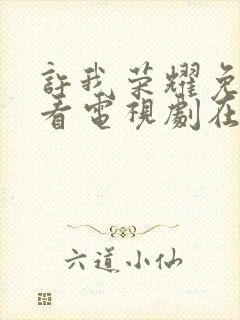 許我荣耀免
看電視劇在
六道小仙